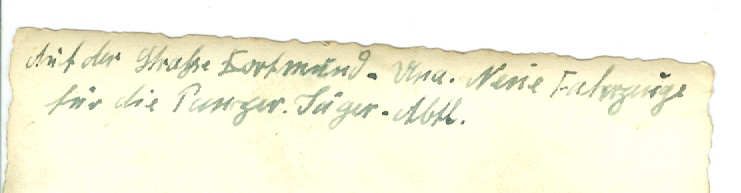 Auf der Straße Dortmund - Una. Neue Fahrzeuge
für die Panzer-Jäger-Abtl.